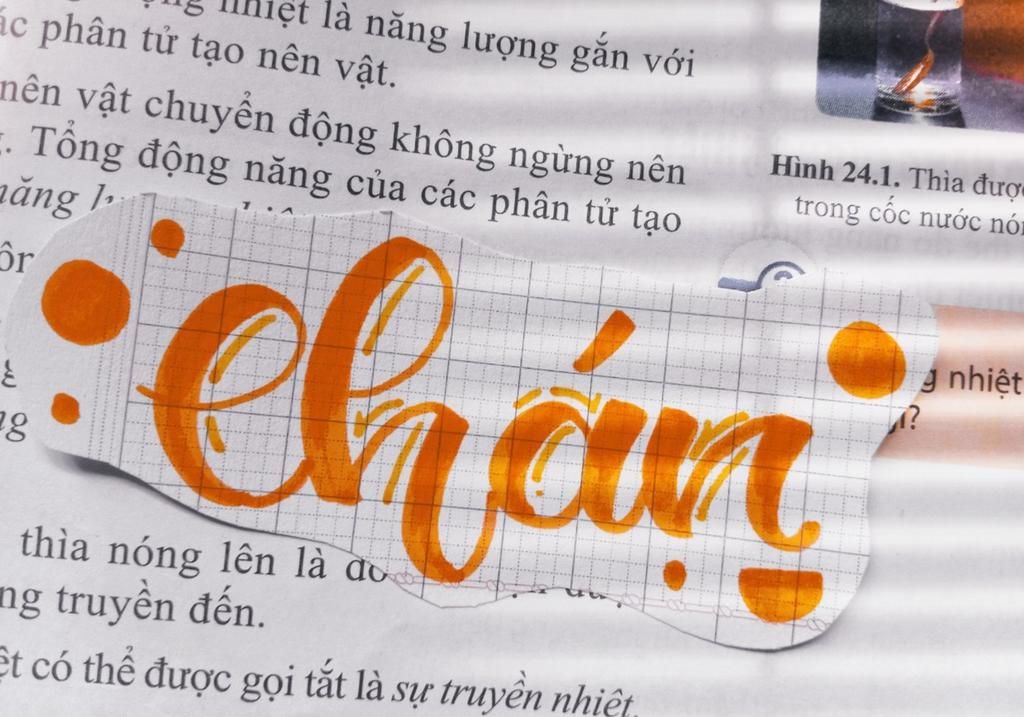 nhiệt là năng lượng gắn với
phân tử tạo nên vật.
nên vật chuyển động không ngừng nên
Tổng động năng của các phân tử tạo
năng
Hình 24.1. Thìa
trong cốc nước
chán
nhiệt
thìa nóng lên là
truyền đến.
có thể được gọi tắt là sự truyền nhiệt.